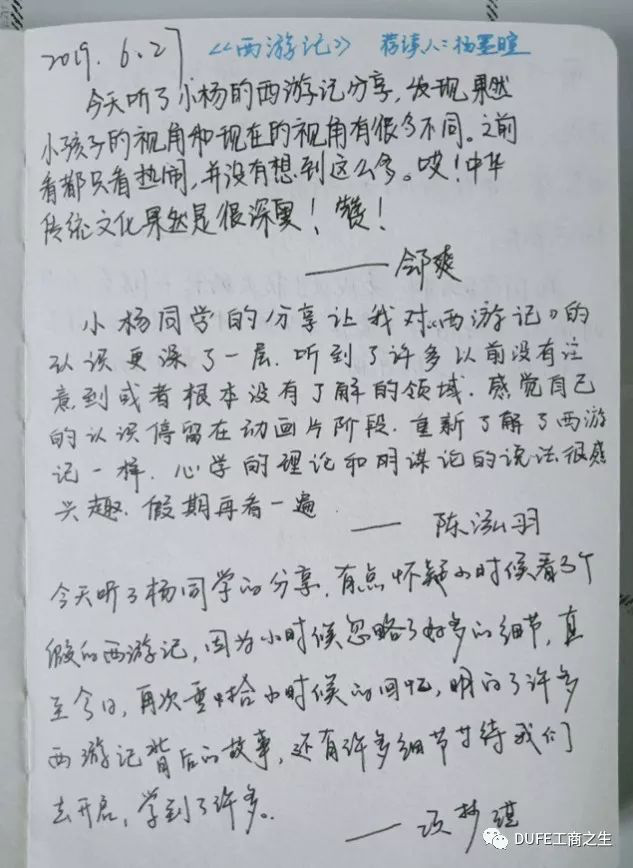 2019.6.27 《西游记》 荐读人：杨墨暄
今天听了小杨的西游记分享，发现果然
小孩子的视角和现在的视角有很多不同。之前
看都只看热闹，并没有想到这么多。哎！中华
传统文化果然是很深奥！赞！
——郐爽
小杨同学的分享让我对《西游记》的
认识更深了一层．听到了许多以前没有注
意到或者根本没有了解的领域．感觉自己
的认识停留在动画片阶段．重新了解了西游
记一样．心学的理论和阴谋论的说法很感
兴趣．假期再看一遍
—— 陈泓羽
今天听了杨同学的分享，有点怀疑小时候看了个
假的西游记，因为小时候忽略了好多的细节，直
至今日，再次重拾小时候的回忆，明白了许多
西游记背后的故事，还有许多细节等待我们
去开启，学到了许多。
——
DUFE工商之生